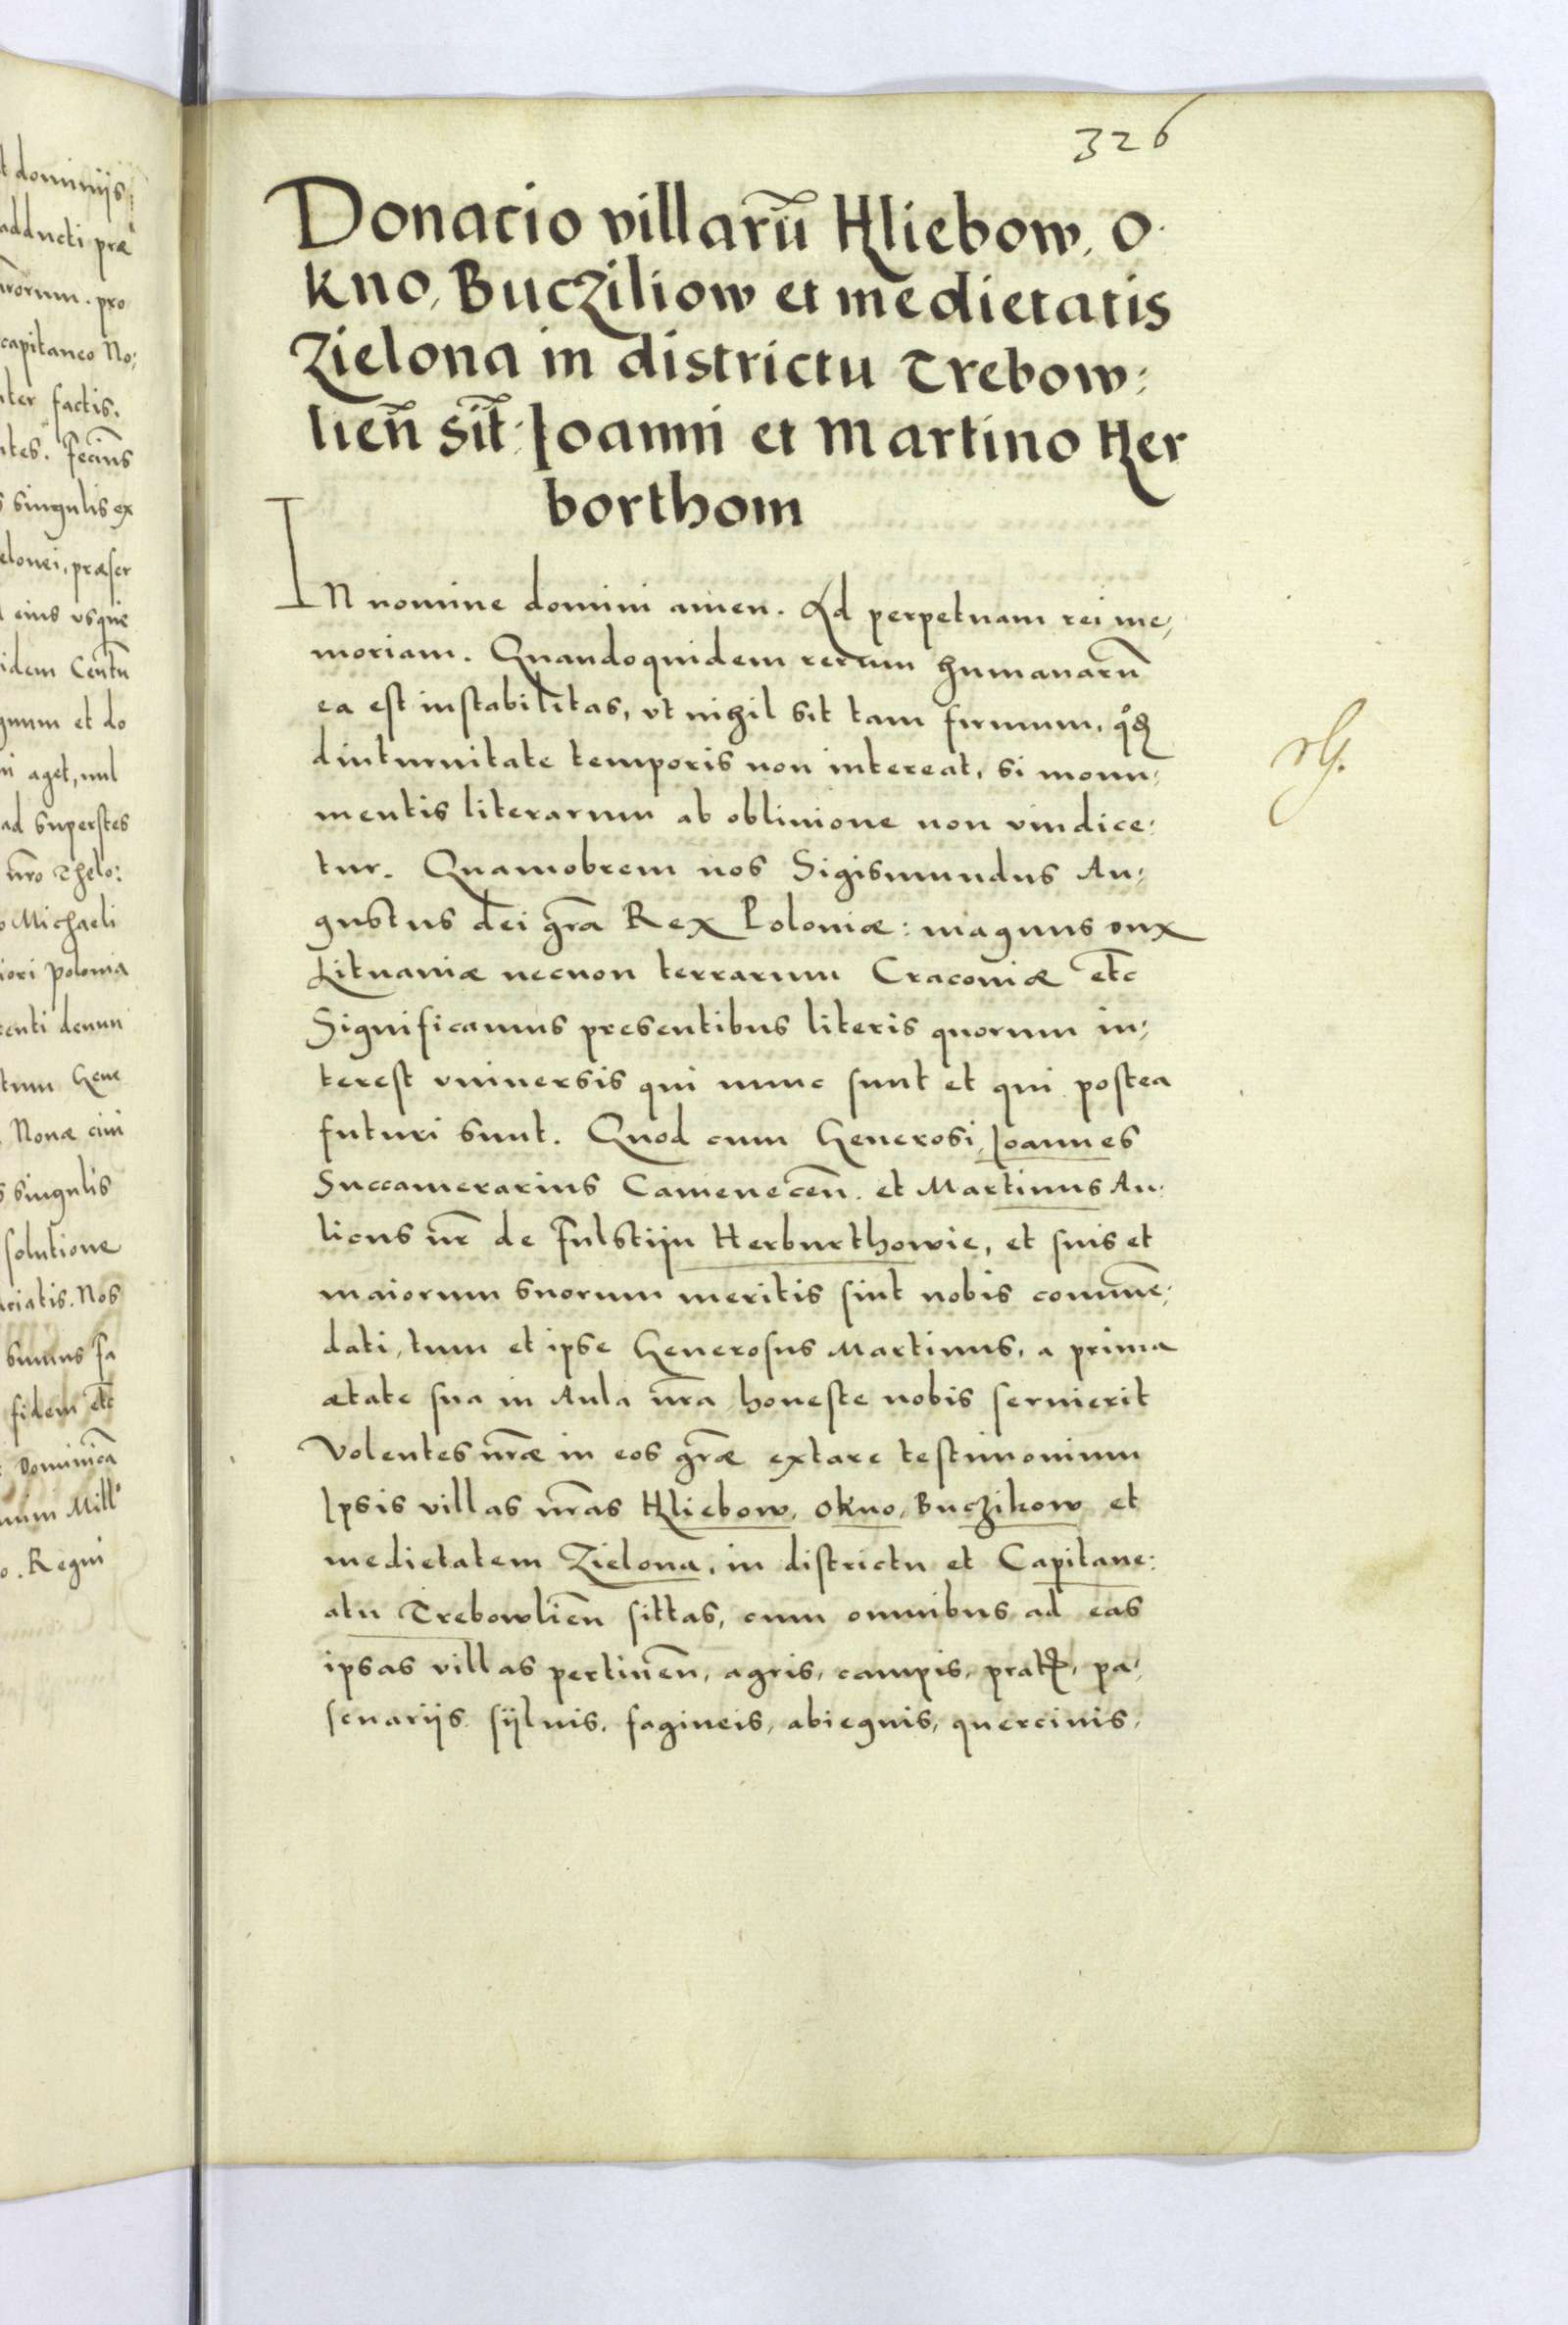 326
Donacio villarū Hliebow, O
kno, Bucziliow et medietatis
Zielona in districtu Trebow:
lien̄ sit̄: Joanni et Martino Her
borthom
IN nomine domini amen. Ad perpetuam rei me,
moriam. Quandoquidem rerum humanarū
ea est instabilitas, vt nihil sit tam firmum, qđ
diuturnitate temporis non intereat, si monu,
mentis literarum ab obliuione non vindice:
tur. Quamobrem nos Sigismundus Au,
gustus dei gr̄a Rex Poloniæ: magnus Dux
Lituaniæ necnon terrarum Cracouiæ etc̄
Significamus presentibus literis quorum in,
terest vniuersis qui nunc sunt et qui postea
futuri sunt. Quod cum Generosi, Joannes
Succamerarius Camenecen̄. et Martinus Au:
licus nr̄ de Fulstijn Herburthowie, et suis et
maiorum suorum meritis sint nobis commē,
dati, tum et ipse Generosus Martinus, a prima
ætate sua in Aula nr̄a honeste nobis seruierit
Volentes nr̄æ in eos gr̄æ extare testimonium
Ipsis villas nr̄as Hliebow, Okno, Buczikow et
medietatem Zielona, in districtu et Capitane:
atu Trebowlien̄ sittas, cum omnibus ad eas
ipsas villas pertinen̄, agris, campis, pratꝭ, pa,
scuariis syluis, fagineis, abiegnis, quercinis,
t dominijs
adducti præ
rorum. pro
capitaneo No:
ter factis.
ntes. Feciūs
s singulis ex
elonei, præser
eius vsque
idem Centū
gnum et do
ni aget, nul
ad superstes
nr̄o Thelo:
o Michaeli
iori Polonia
centi denun
tum Gene
Nonæ ciui
s singulis
solutione
nciatis. Nos
sumus fa
fidem etc̄
Dominicā
num Mill°
o. Regni